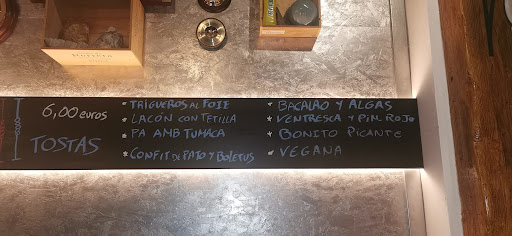 6,00 euros
TOSTAS
* TRIGUEROS AL FOIE
* LACÓN CON TETILLA
* PA AMB TUMACA
* CONFIT DE PATO Y BOLETUS
* BACALAO Y ALGAS
* VENTRESCA Y PIM. ROJO
* BONITO PICANTE
* VEGANA